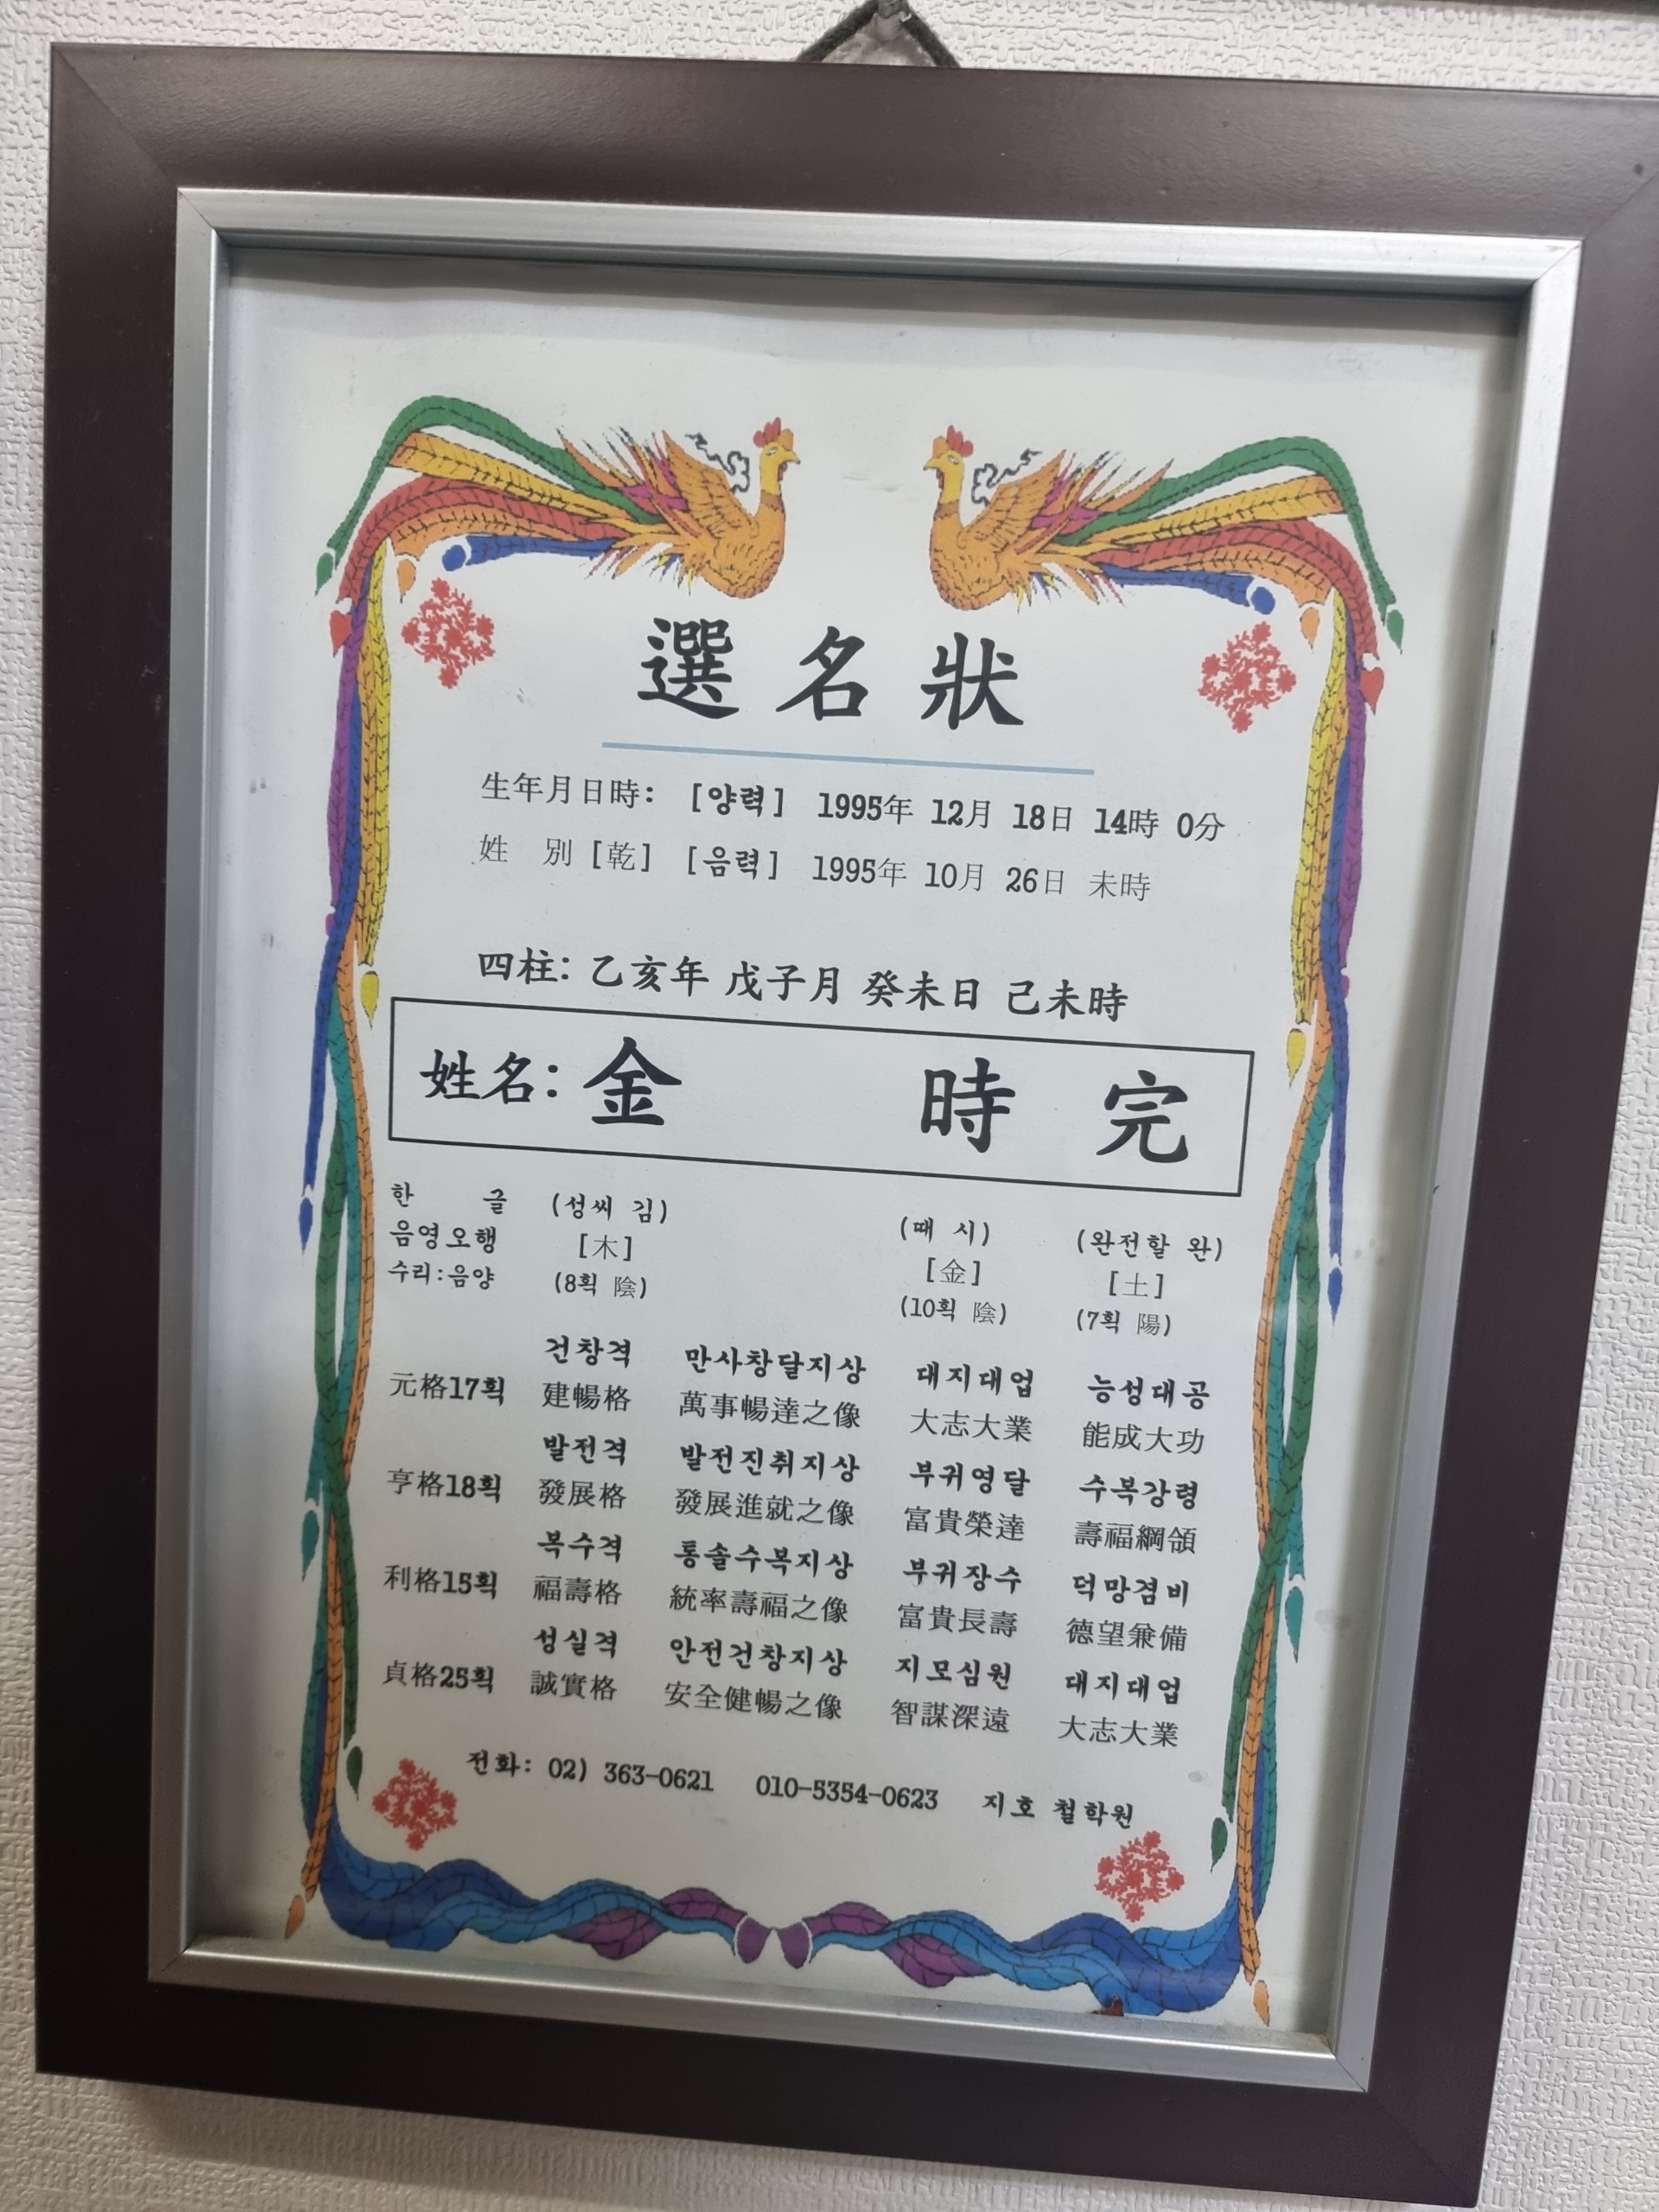 選名狀
生年月日時: [양력] 1995年 12月 18日 14時 0分
姓 別 [乾] [음력] 1995年 10月 26日 未時
四柱: 乙亥年 戊子月 癸未日 己未時
姓名: 金 時 完
한 글 (성씨 김) (때 시) (완전할 완)
음영오행 [木] [金] [土]
수리:음양 (8획 陰) (10획 陰) (7획 陽)
건창격 만사창달지상 대지대업 능성대공
元格17획 建暢格 萬事暢達之像 大志大業 能成大功
발전격 발전진취지상 부귀영달 수복강령
亨格18획 發展格 發展進就之像 富貴榮達 壽福綱領
복수격 통솔수복지상 부귀장수 덕망겸비
利格15획 福壽格 統率壽福之像 富貴長壽 德望兼備
성실격 안전건창지상 지모심원 대지대업
貞格25획 誠實格 安全健暢之像 智謀深遠 大志大業
전화: 02) 363-0621 010-5354-0623 지호 철학원